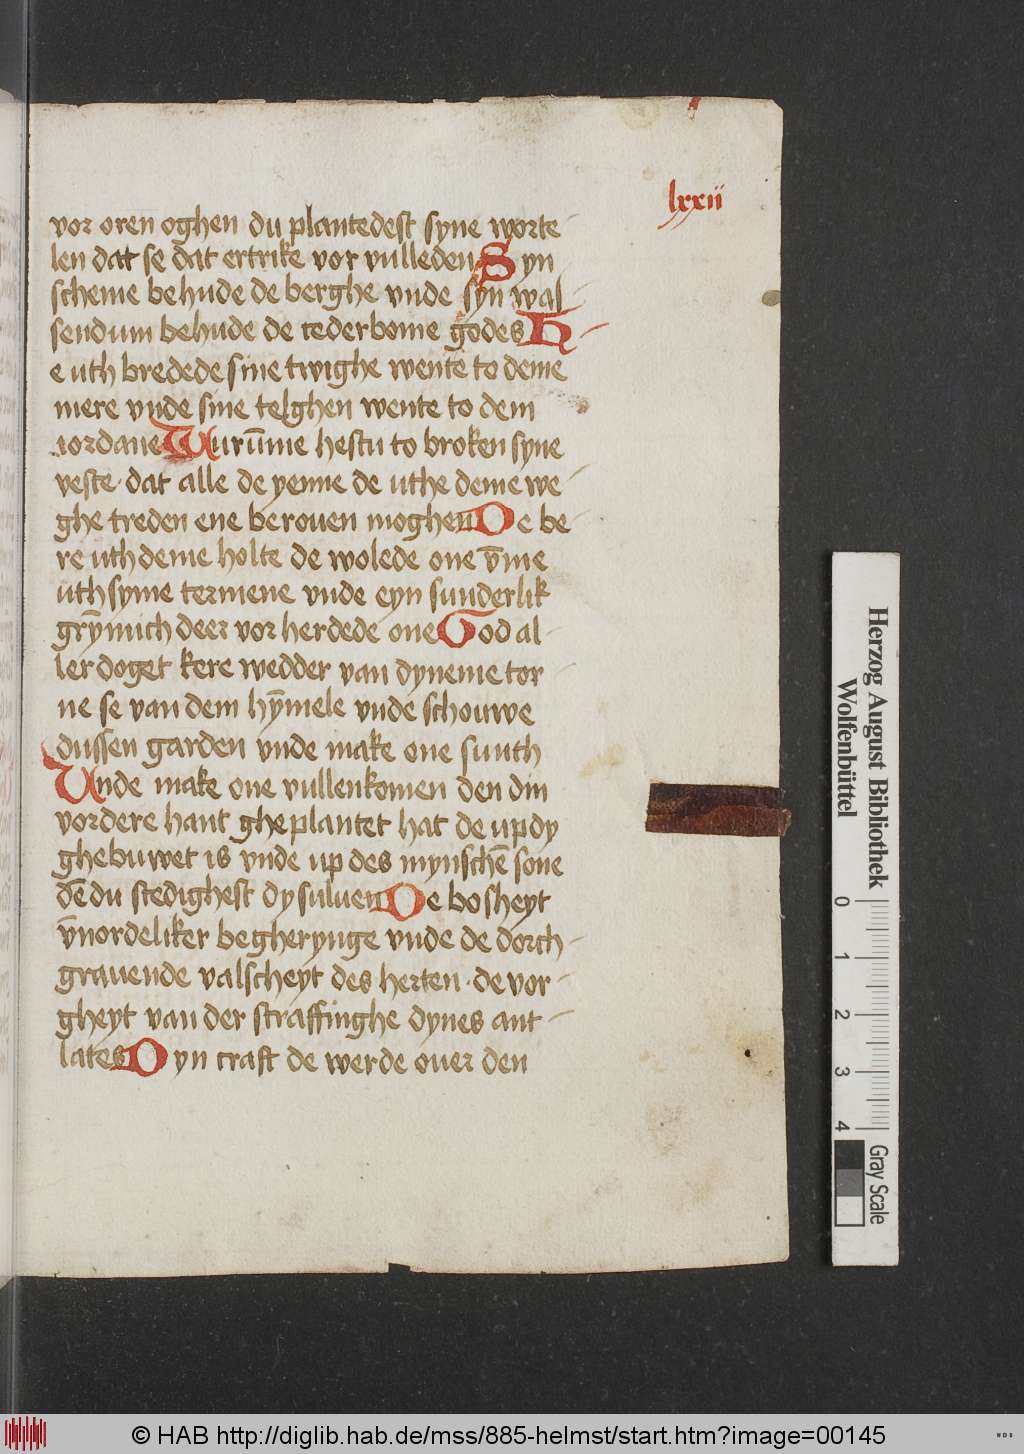 lxxii
vor oren oghen du plantedest syne worte-
len dat se dat ertrike vor vulleden Syn
scheme behude de berghe vnde syn was-
sendum behude de cederbome godes H-
e uth bredede sine twighe wente to deme
mere vnde sine telghen wente to dem
iordane Wurūme hestu to broken syne
veste · dat alle de yenne de uthe deme we-
ghe treden ene berouen moghen De be-
re uth deme holte de wolede one v̄me
uth syme termene vnde eyn sunderlik
grȳmich deer vor herdede one God al-
ler doget kere wedder van dyneme tor-
ne se van dem hȳmele vnde schouwe
dussen garden vnde make one sunth
Vnde make one vullenkomen den din
vordere hant gheplantet hat de up dy
ghebuwet is vnde up des mynschē sone
dē du stedighest dy suluen De bosheyt
v̄nordeliker begherynge vnde de dorch-
grauende valscheyt des herten · de vor-
gheyt van der straffinghe dynes ant-
lates Dyn craft de werde ouer den
Herzog August Bibliothek
Wolfenbüttel
0 1 2 3 4
Gray Scale
© HAB http://diglib.hab.de/mss/885-helmst/start.htm?image=00145